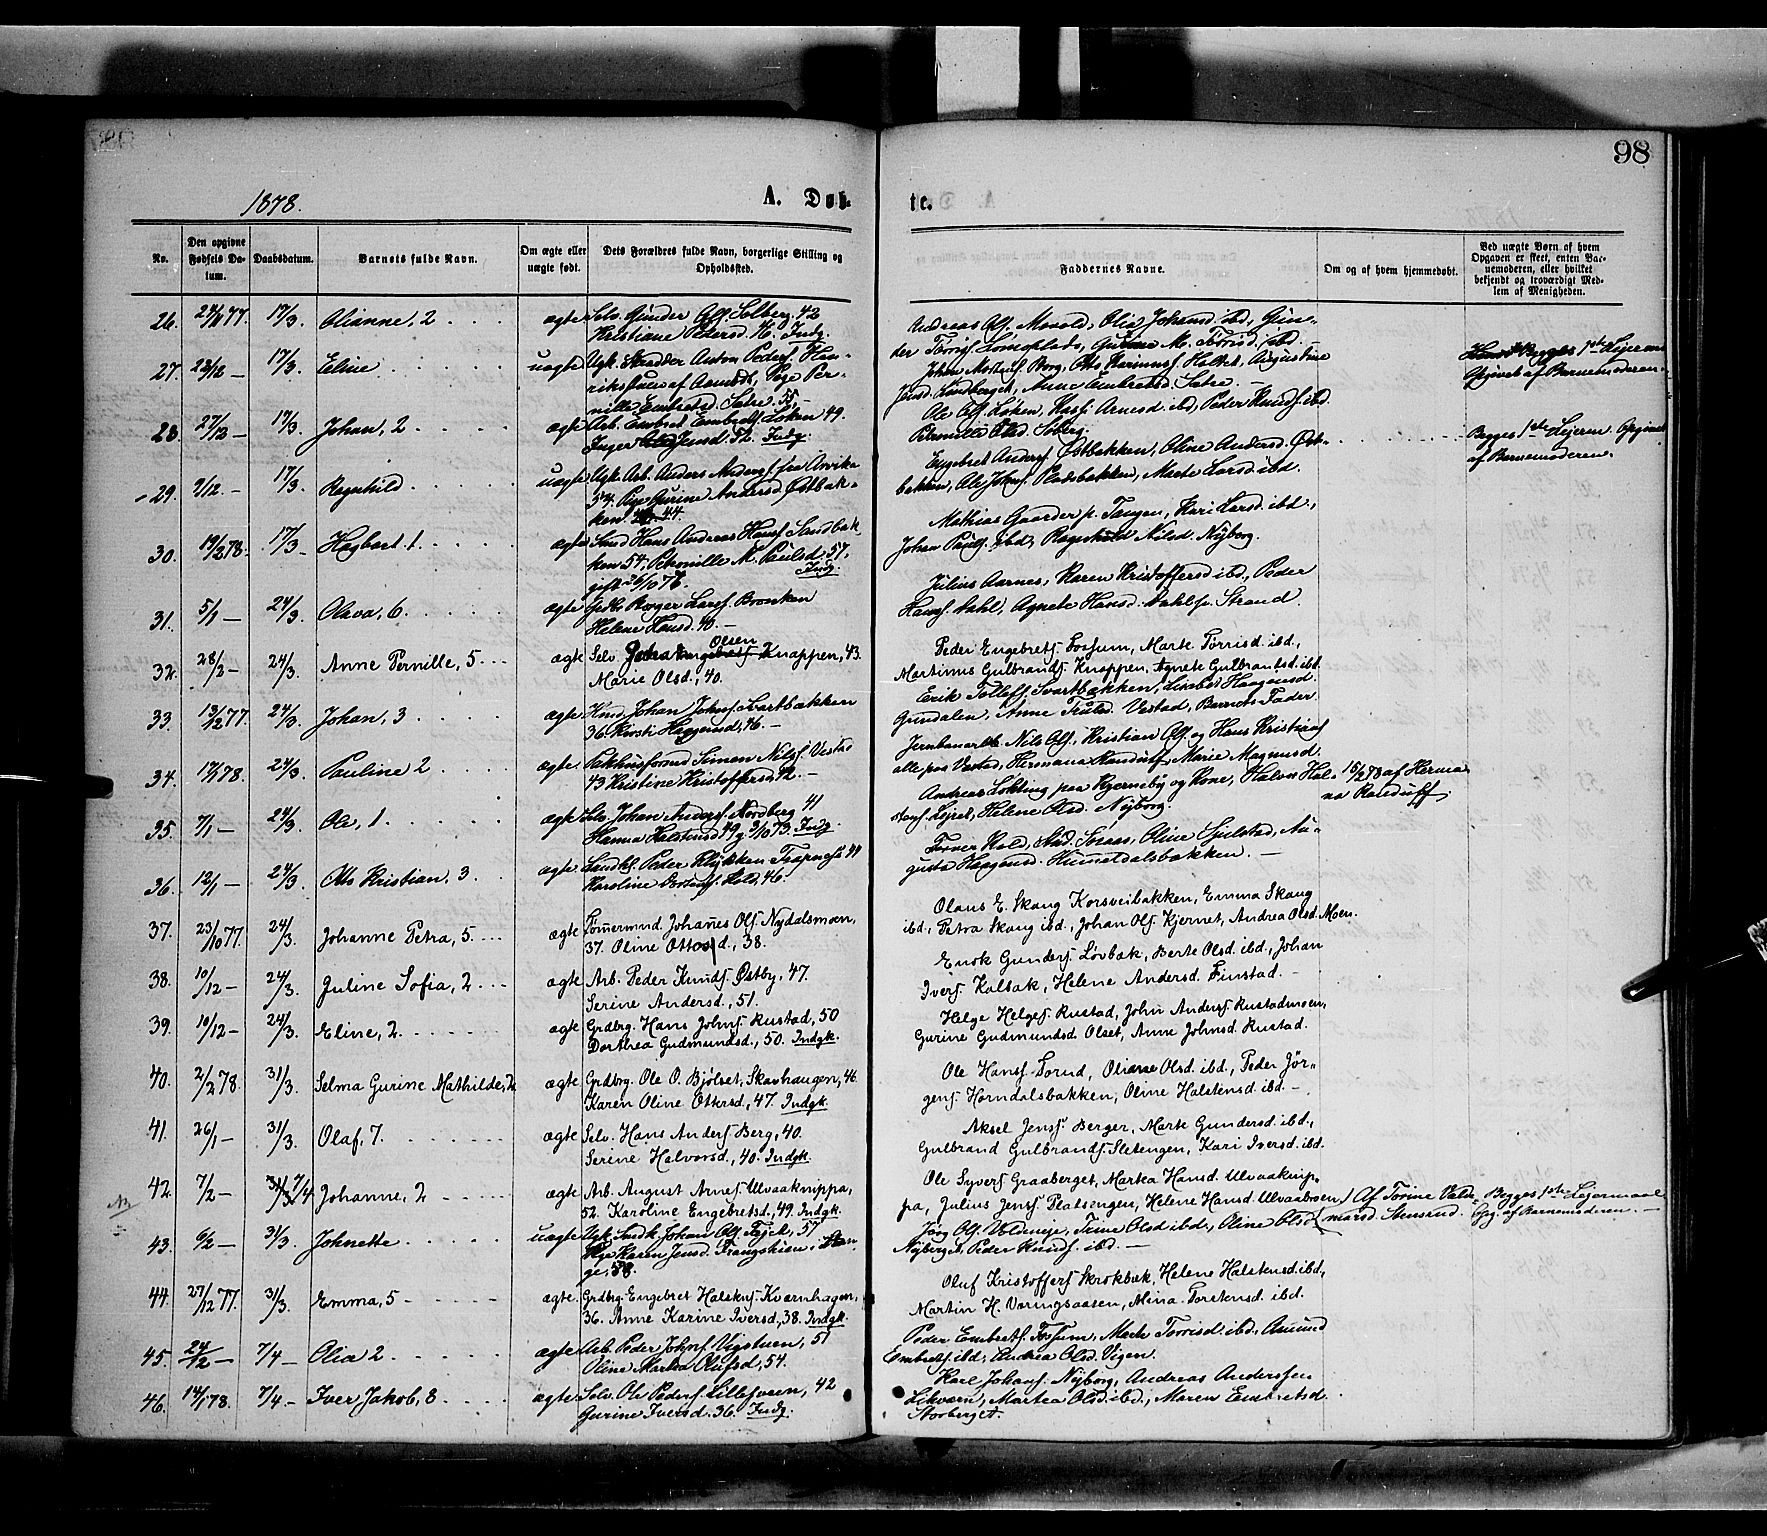 98
1878.
A. Døb-
te.
No.
Den opgivne
Fødsels Da-
tum.
Daabsdatum.
Barnets fulde Navn.
Om ægte eller
uægte født.
Dets Forældres fulde Navn, borgerlige Stilling og
Opholdssted.
Faddernes Navne.
Om og af hvem hjemmedøbt.
Ved uægte Børn af hvem
Opgaven er skeet, enten Bar-
nemoderen, eller hvilket
bekjendt og troværdigt Med-
lem af Menigheden.
26. 77. 17/3. Olianne, 2 ægte Selv. Gunder Olss. Solberg. 42
Kristiane Pedersd. 46. Indg.
Andreas Ols. Morold, Olia Johansd. ibd., Gun-
der Torris. Lomoplads, M. Torrisd. ibd.
27. 17/3. Eline uægte Ugk. Skrædder Anton Peders. Hen-
af Aamodt, Pige Per-
nille Embretsd. Sætre. 55.
Johan Borg, Otto Halset, Augustine
Jensd. Sandberget, Anne Embretsd. Sætre.
Begges 1ste Lejerm.
Opgivet af Barnemoderen.
28. 27/12 — 17/3. Johan, 2 ægte Arb. Embret Embrets. Løken 49.
Inger Jensd. 52. Indg.
Ole Ols. Løken, Arnesd. ibd, Peder Knuds. ibd.
Pernille Olsd. Soberg.
29. 7/12. — 17/3. Ragnhild uægte Ugk. Arb. Anders Anders. fra Arvika
54. Pige Gurine Andersd. Østbak-
ken. 44.
Engebret Anders. Østbakken, Oline Andersd. Øst-
bakken, Ole Johns. Pladsbakken, Marte Larsd. ibd.
Begges 1ste Lejerm. Opgivet
af Barnemoderen.
30. 19/2 78. 17/3 Hagbart 1. ægte Smed Hans Andreas Hans. Sandbak-
ken 54, Petronille M. Paulsd. 57,
gift 26/10 76. Indg.
Mathias Gaarder p. Tangen, Kari Larsd. ibd.,
Johan Pauls. ibd, Ragnhild Nilsd. Nyborg.
31. 5/1 — 24/3. Olava, 6. ægte Borger Lars. Broenken
Helene Hansd. 40. —
Julius Aarnes, Karen Kristoffersd ibd., Peder
Hans. Dahl, Agnete Hansd. Dahl p. Strand.
32. 28/2 — 24/3. Anne Pernille, 5 ægte Selv. Olsen Knappen, 43.
Marie Olsd., 40.
Peder Engebrets. Fossum, Marte Torrisd. ibd.,
Martinus Gulbrands. Knappen, Agnete Gulbrandsd. ibd.
33. 13/12 77. 24/3. Johan, 3 ægte Johan Johns. Svartbækken
36. Kirsti Haagensd., 46. —
Erik Tollefs. Svartbækken, Lisabet Haagensd.
Grindalen, Anne Trulsd. Vestad, Barnets Fader
34. 78. 24/3. Pauline 2 ægte Pakhusformd Simen Nils. Vestad
43 Kristine Kristoffersd, 42. —
Jernbanearb. Nils Ols., Kristian Ols. og Hans Kristians.
alle paa Vestad, Hermana Randulf, Marie Magnusd.
15/2 78 af Herma-
na Randulf.
35. 7/1 — 24/3. Ole, 1. ægte Selv. Johan Anders. Nordberg 41
Hanna Halstensd 49 g. 9/10 73. Indg.
Andreas Løkting paa Kjerneby og Kone, Halvor Hal-
stens. Lejret, Helene Olsd. Nyborg.
36. 12/1 — 24/3. Otto Kristian, 3. ægte Peder Klykken 44
Karoline Kold, 46.
Torver Kold, Soraas, Oline Gjelstad, Au-
gusta Haagensd. Kummeldalsbakken. —
37. 23/10 77. 24/3. Johanne Petra, 5. ægte Tømermnd. Johanes Ols. Nydalsmoen,
37. Oline Ottosd., 38.
Olaus E. Skang Korsveibakken, Emma Skang
ibd., Petra Skang ibd., Johan Ols. Kjernet, Andrea Olsd. Moen.
38. 10/12 — 24/3. Juline Sofia, 2 ægte Arb. Peder Knuds. Østby, 47.
Serine Andersd., 51.
Enok Gunders. Løvbak, Berte Olsd. ibd., Johan
Ivers. Kalbak, Helene Andersd. Finstad. —
39. 10/12 — 24/3. Eline, 2. ægte Grdbrg. Hans Johns. Rustad, 50
Dorthea Gudmundsd., 50. Indgk.
Helge Helges. Rustad, John Anders. Rustadmoen,
Gurine Gudmundsd. Olset, Anne Johnsd. Rustad.
40. 2/2 78. 31/3. Selma Gurine Mathilde, 2 ægte Grdbrg. Ole O. Bjølset, Skavhaugen, 46.
Karen Oline Ottersd., 47. Indgk.
Ole Hans. Torud, Oliane Olsd. ibd., Peder Jør-
gens. Horndalsbakken, Oline Halstensd. ibd. —
41. 26/1 — 31/3. Olaf, 7. ægte Selv. Hans Anders. Berg, 40.
Serine Halvorsd., 40. Indgk.
Aksel Jens. Berger, Marte Gundersd. ibd.,
Gulbrand Gulbrands. Sletengen, Kari Iversd. ibd.
42. 7/2 — 31/3 7/4 Johanne, 2 ægte Arb. August Arnes. Ulvaaknippa,
52. Karoline Engebretsd., 49. Indgk.
Ole Syvers. Graaberget, Martea Hansd. Ulvaaknip-
pa, Julius Jens. Platsengen, Helene Hansd. Ulvaabroen
43. 6/2 — 31/3. Johnette uægte Ugk. Johan Ols. 57
Pige Karen Jensd. Frangskien,
ge, 58.
Jørg. Ols. Voldeneje, Trine Olsd. ibd., Oline Olsd.
Nyberget, Peder Knuds. ibd. —
Af Torine Vald-
marsd. Stensrud.
Begges 1ste Lejermaal
Opg. af Barnemoderen. —
44. 27/12 77. 31/3. Emma, 5 ægte. Grdbrg. Engebret Halstens. Kværnhagen,
36. Anne Karine Iversd., 38. Indgk.
Oluf Kristoffers. Skrokbæk, Helene Halstensd. ibd.,
Martin H. Voringsaasen, Mina Torstensd. ibd.
45. 24/12 — 7/4 — Olia 2. ægte Arb. Peder Johns. Vigstuen, 51
Oline Martea Olufsd., 54.
Peder Embrets. Fossum, Marte Torrisd. ibd., Amund
Embrets. ibd., Andrea Olsd. Vigen.
46. 14/1 78. 7/4 — Iver Jakob, 8. ægte Selv. Ole Peders. Lilleveen, 42
Gurine Iversd. 36. Indg.
Karl Johans. Nyborg, Andreas Andersen
Likvern, Martea Olsd. ibd., Maren Embretsd.
Storberget.